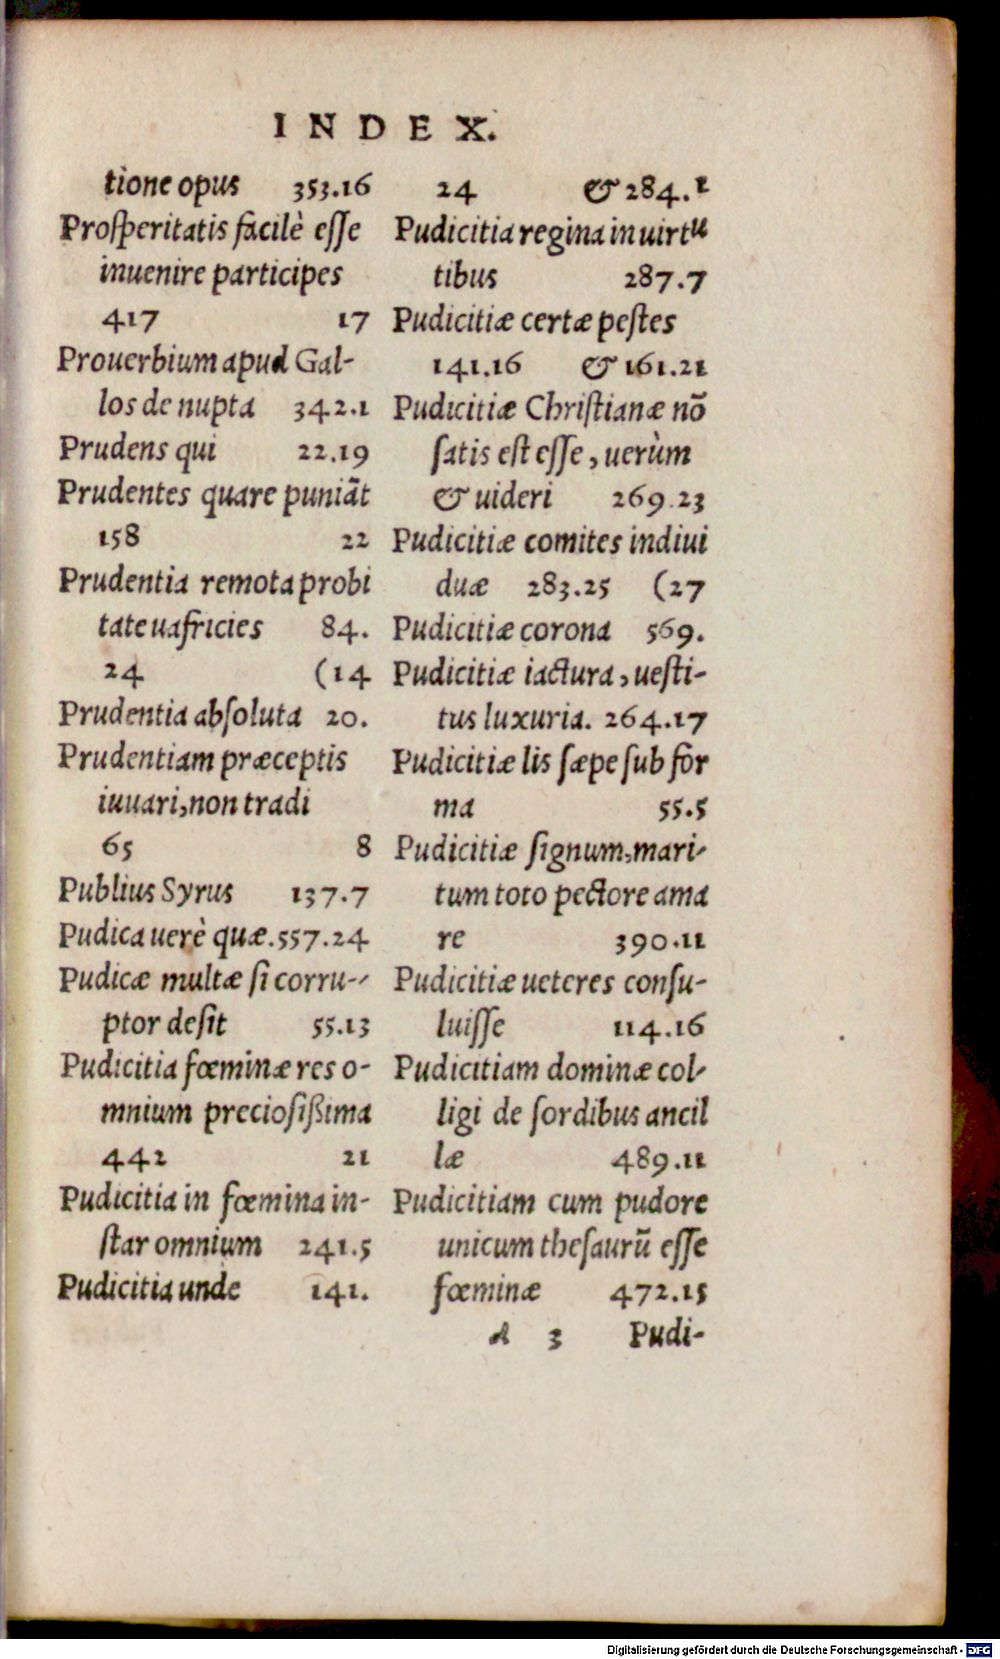 INDEX.
tione opus 353.16
Proſperitatis facilè eſſe
inuenire participes
417 17
Prouerbium apud Gal-
los de nupta 342.1
Prudens qui 22.19
Prudentes quare puniãt
158 22
Prudentia remota probi
tate uafricies 84.
24 (14
Prudentia abſoluta 20.
Prudentiam præceptis
iuuari, non tradi
65 8
Publius Syrus 137.7
Pudica uerè quæ. 557.24
Pudicæ multæ ſi corru-
ptor deſit 55.13
Pudicitia fœminæ res o-
mnium precioſißima
442 21
Pudicitia in fœmina in-
ſtar omnium 241.5
Pudicitia unde 141.
24 & 284.1
Pudicitia regina in uirtu
tibus 287.7
Pudicitiæ certæ peſtes
141.16 & 161.21
Pudicitiæ Chriſtianæ nõ
ſatis eſt eſſe, uerùm
& uideri 269.23
Pudicitiæ comites indiui
duæ 283.25 (27
Pudicitiæ corona 569.
Pudicitiæ iactura, ueſti-
tus luxuria. 264.17
Pudicitiæ lis ſæpe ſub for
ma 55.5
Pudicitiæ ſignum, mari-
tum toto pectore ama
re 390.11
Pudicitiæ ueteres conſu-
luiſſe 114.16
Pudicitiam dominæ col-
ligi de ſordibus ancil
læ 489.11
Pudicitiam cum pudore
unicum theſaurũ eſſe
fœminæ 472.15
A 3 Pudi-
Digitalisierung gefördert durch die Deutsche Forschungsgemeinschaft - DFG